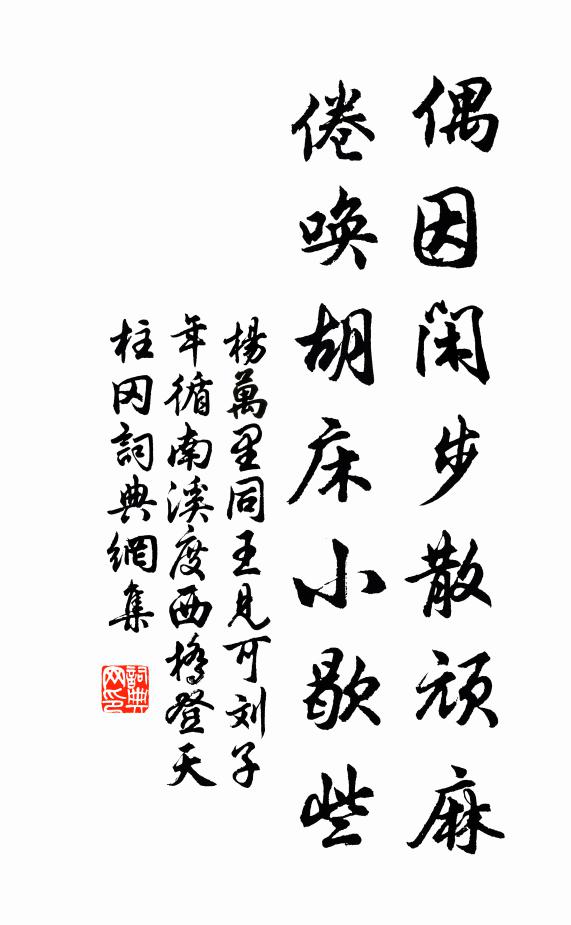 偶因闲步散顽麻
倦唤胡床小歇些
楊萬里同王見可刘子
年循南溪度西橋登天
柱冈詞典網集
詞典
网印